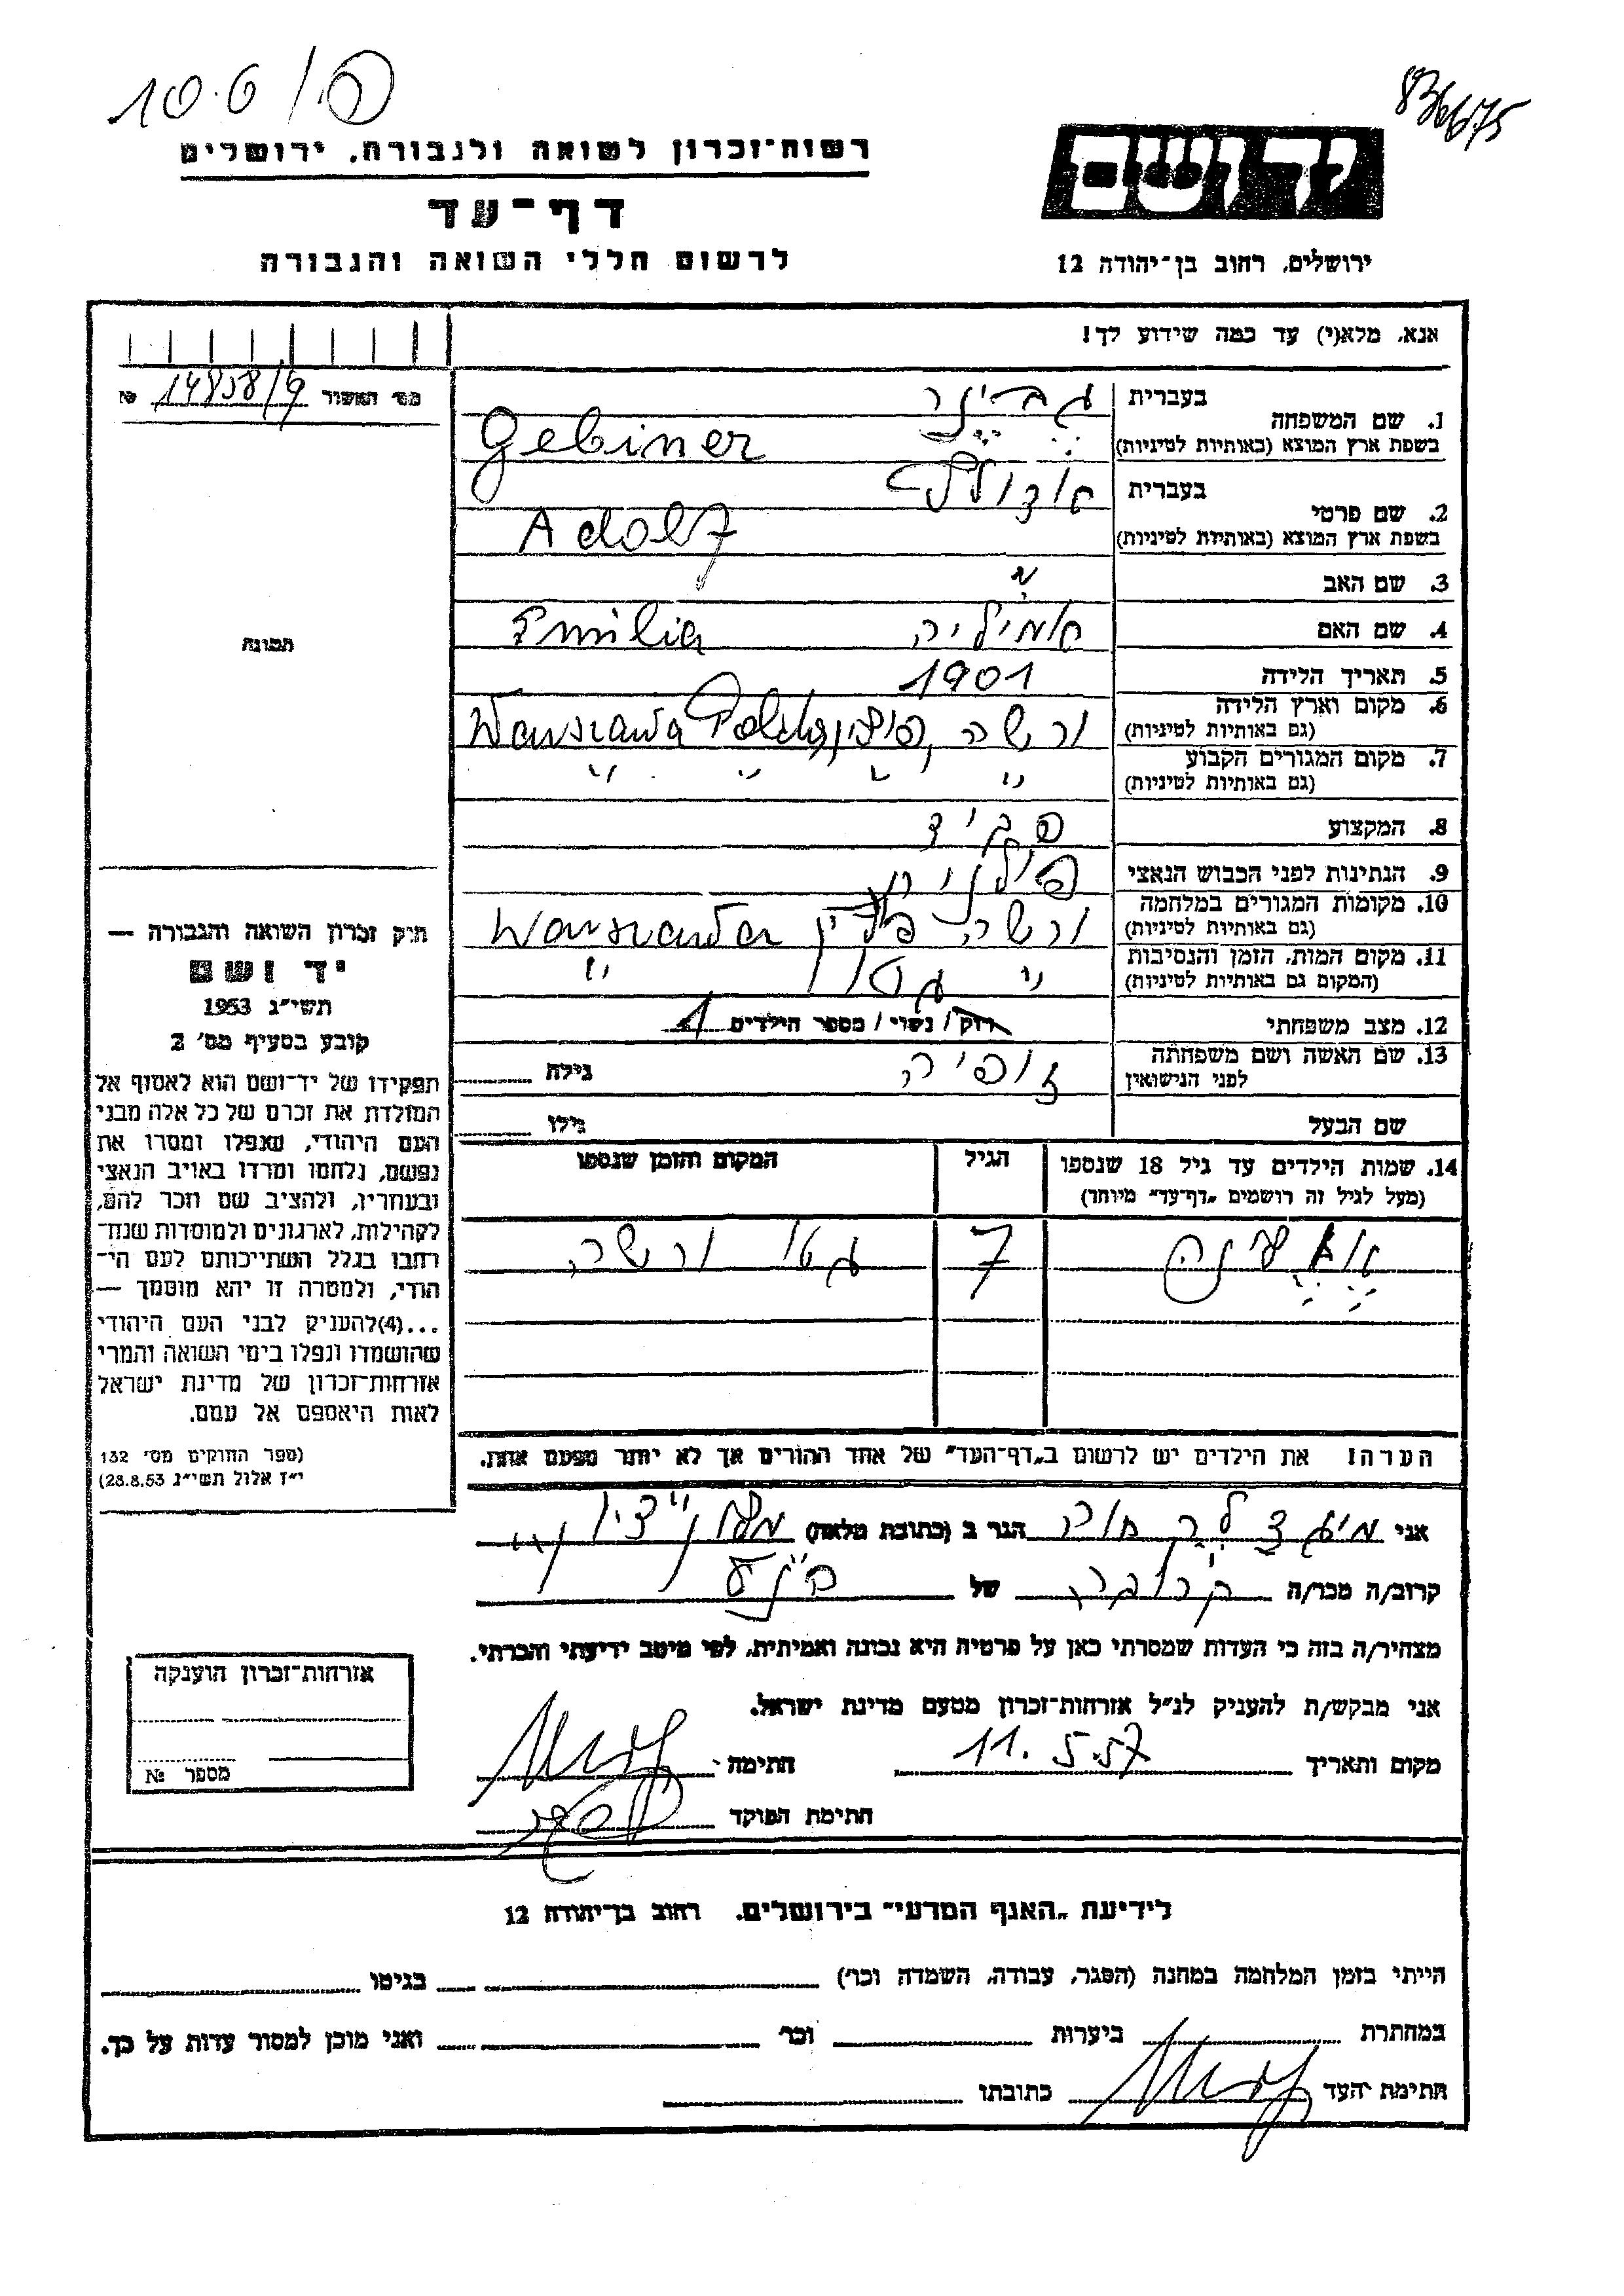 10.6/
836675
רשות־זכרון לשואה ולגבורה, ירושלים
דף־עד
לרשום חללי השואה והגבורה
ידושם
ירושלים, רחוב בן־יהודה 12
אנא, מלא(י) עד כמה שידוע לך!
מס' האשור 14858/9 №
תמונה
1. שם המשפחה
בעברית גבינר
בשפת ארץ המוצא (באותיות לטיניות) Gebiner
2. שם פרטי
בעברית אדולף
בשפת ארץ המוצא (באותיות לטיניות) Adolf
3. שם האב
4. שם האם אמיליה Emilia
5. תאריך הלידה 1901
6. מקום וארץ הלידה
(גם באותיות לטיניות) ורשה, פולין Warszawa Polska
7. מקום המגורים הקבוע
(גם באותיות לטיניות) " " " "
8. המקצוע פקיד
9. הנתינות לפני הכבוש הנאצי פולנית
10. מקומות המגורים במלחמה
(גם באותיות לטיניות) ורשה פולין Warszawa
11. מקום המות, הזמן והנסיבות
(המקום גם באותיות לטיניות) " גטו "
12. מצב משפחתי רווק / נשוי / מספר הילדים 1
13. שם האשה ושם משפחתה
לפני הנישואין זופיה גילה
שם הבעל גילו
14. שמות הילדים עד גיל 18 שנספו
(מעל לגיל זה רושמים „דף־עד" מיוחד)
הגיל
המקום והזמן שנספו
7 גטו ורשה
הערה! את הילדים יש לרשום ב„דף־העד" של אחד ההורים אך לא יותר מפעם אחת.
חוק זכרון השואה והגבורה —
יד ושם
תשי"ג 1953
קובע בסעיף מס' 2
תפקידו של יד־ושם הוא לאסוף אל
המולדת את זכרם של כל אלה מבני
העם היהודי, שנפלו ומסרו את
נפשם, נלחמו ומרדו באויב הנאצי
ובעוזריו, ולהציב שם וזכר להם,
לקהילות, לארגונים ולמוסדות שנח־
רבו בגלל השתייכותם לעם הי־
הודי, ולמטרה זו יהא מוסמך —
...(4)להעניק לבני העם היהודי
שהושמדו ונפלו בימי השואה והמרי
אזרחות־זכרון של מדינת ישראל
לאות היאספם אל עמם.
(ספר החוקים מס' 132
י"ז אלול תשי"ג 28.8.53)
אני הגר ב (כתובת מלאה)
קרוב/ה מכר/ה של
מצהיר/ה בזה כי העדות שמסרתי כאן על פרטיה היא נכונה ואמיתית, לפי מיטב ידיעתי והכרתי.
אני מבקש/ת להעניק לנ"ל אזרחות־זכרון מטעם מדינת ישראל.
מקום ותאריך 11. 5.57 חתימה
חתימת הפוקד
אזרחות־זכרון הוענקה
מספר №
לידיעת „האגף המדעי" בירושלים. רחוב בן־יהודה 12
הייתי בזמן המלחמה במחנה (הסגר, עבודה, השמדה וכו') בגיטו
במחתרת ביערות וכו' ואני מוכן למסור עדות על כך.
חתימת העד כתובתו